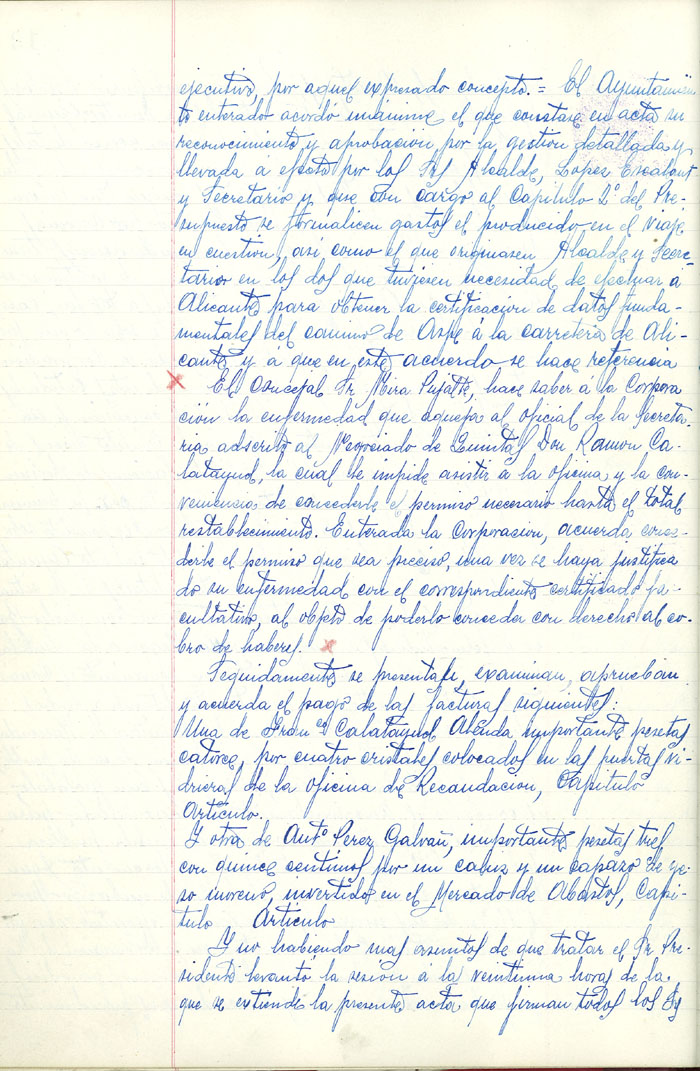 ejecutivo, por aquel expresado concepto. = El Ayuntamien-
to enterado acordó unánime el que constase en acta su
reconocimiento y aprobación, por la gestión detallada y
llevada a efecto por los Srs Alcalde, Lopez Escalant
y Secretario y que con cargo al Capitulo 2º del Pre-
supuesto se formalicen gastos el producido en el viaje
en cuestion, asi como el que originasen Alcalde y Secre-
tario en los dos que tuviesen necesidad de efectuar á
Alicante para obtener la certificacion de datos funda-
mentales del camino de Aspe á la carretera de Ali-
cante y a que en este acuerdo se hace referencia
El Concejal Sr. Mira Pujalte, hace saber á la Corpora
ción la enfermedad que aqueja al oficial de la Secreta-
ria adscrito al Negociado de Quintas Don Ramon Ca-
latayud, la cual le impide asistir a la oficina y la con-
veniencia de concederle el permiso necesario hasta el total
restablecimiento. Enterada la Corporacion, acuerda conce-
derle el permiso que sea preciso, una vez se haya justifica
do su enfermedad con el correspondiente certificado fa-
cultativo, al objeto de poderlo conceder con derecho al co-
bro de haberes.
Seguidamente se presentan, examinan, aprueban
y acuerda el pago de las facturas siguientes:
Una de Franco Calatayud Alenda importante pesetas
catorce, por cuatro cristales colocados en las puertas vi-
drieras de la oficina de Recaudacion, Capitulo
Artículo.
Y otra de Antº Perez Galvañ, importante pesetas tres
con quince centimos por un cahiz y un capazo de ye-
so moreno, invertido en el Mercado de Abastos, Capi-
tulo Artículo
Y no habiendo mas asuntos de que tratar el Sr. Pre-
sidente levantó la sesión a las veintiuna horas de la
que se extiende la presente acta que firman todos los Srs